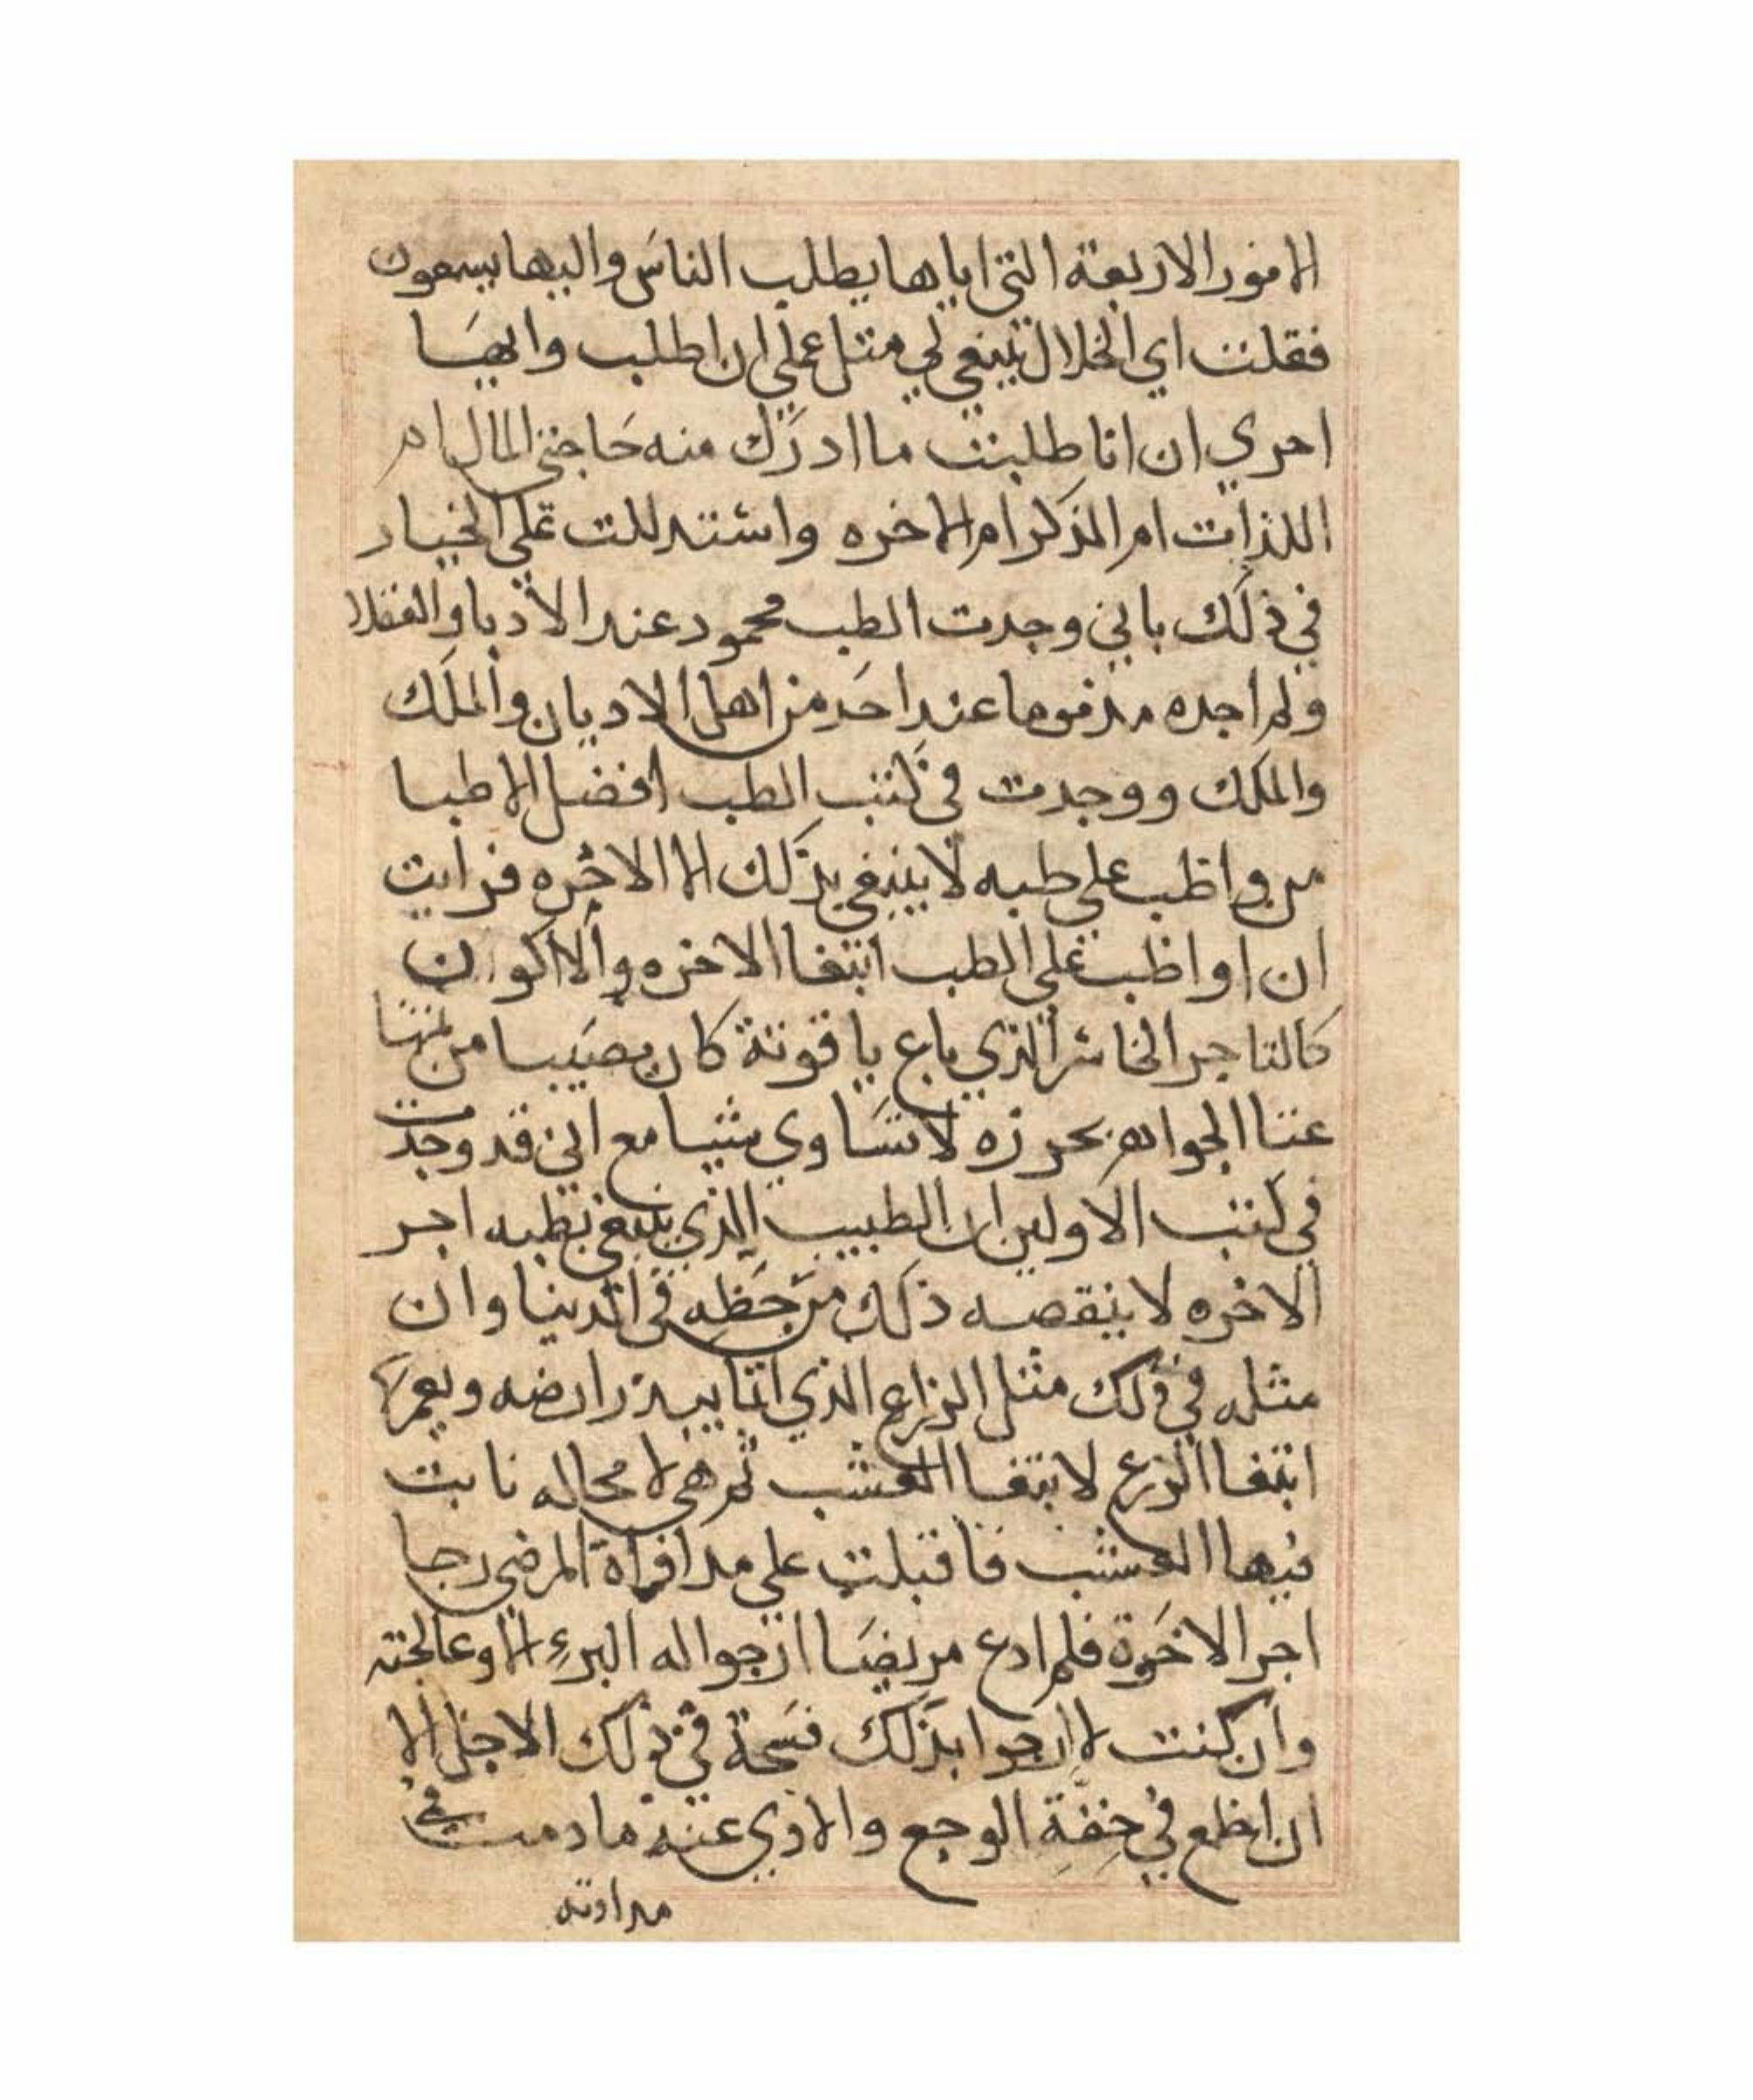 الامور الاربعة التي اياها يطلب الناس واليها يسعون
فقلت اي الخلال ينبغي لي مثل عملي ان اطلب وايها
احري ان انا طلبت ما ادرك منه حاجتي المال ام
اللذات ام الذكر ام الاخره واستدللت على الخيار
في ذلك باني وجدت الطب محمود عند الادبا والعقلا
ولم اجده مذموما عند احد من اهل الاديان والملك
والملك ووجدت في كتب الطب افضل الاطبا
من واظب على طبه لا يبتغي بذلك الا الاخره فرايت
ان اواظب على الطب ابتغا الاخره والا اكون
كالتاجر الخاسر الذي باع ياقوتة كان مصيبا من ثمنها
غنا الجواهر بخرزه لا تساوي شيا مع اني قد وجدت
في كتب الاولين ان الطبيب الذي يبتغي بطبه اجر
الاخره لا ينقصه ذلك من حظه في الدنيا وان
مثله في ذلك مثل الزراع الذي انما يبذر ارضه ويعمرها
ابتغا الزرع لا بتغا العشب ثم هي لا محاله نابت
فيها العشب فاقبلت على مداواة المرضى رجا
اجر الاخرة فلم ادع مريضا ارجوا له البرء الا وعالجته
وان كنت لا ارجوا بذلك فسحة في ذلك الاجل الا
ان اطمع في خفة الوجع والاذي عنه ما دمت في
مداوته